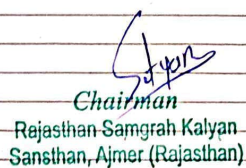 Chairman
Rajasthan Samgrah Kalyan
Sansthan, Ajmer (Rajasthan)